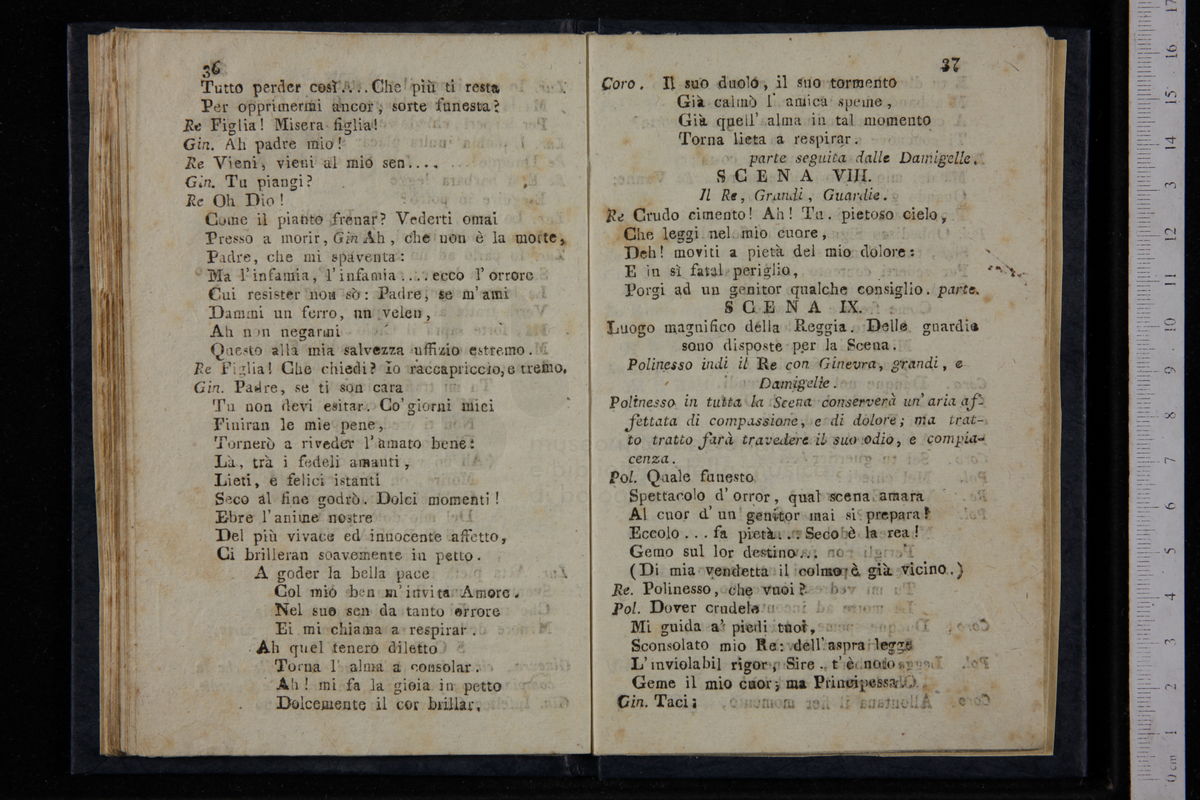 36
Tutto perder così ... Che più ti resta
Per opprimermi ancor, sorte funesta?
Re Figlia! Misera figlia!
Gin. Ah padre mio!
Re Vieni, vieni al mio sen ....
Gin. Tu piangi?
Re Oh Dio!
Come il pianto frenar? Vederti omai
Presso a morir, Gin Ah, che non è la morte,
Padre, che mi spaventa:
Ma l'infamia, l'infamia .... ecco l'orrore
Cui resister non sò: Padre, se m'ami
Dammi un ferro, un velen,
Ah non negarmi
Questo alla mia salvezza uffizio estremo.
Re Figlia! Che chiedi? io raccapriccio, e tremo.
Gin. Padre, se ti son cara
Tu non devi esitar. Co'giorni miei
Finiran le mie pene,
Tornerò a riveder l'amato bene:
Là, trà i fedeli amanti,
Lieti, e felici istanti
Seco al fine godrò. Dolci momenti!
Ebre l'anime nostre
Del più vivace ed innocente affetto,
Ci brilleran soavemente in petto.
A goder la bella pace
Col mio ben m'invita Amore.
Nel suo sen da tanto orrore
Ei mi chiama a respirar.
Ah quel tenero diletto
Torna l'alma a consolar.
Ah! mi fa la gioia in petto
Dolcemente il cor brillar.
37
Coro. Il suo duolo, il suo tormento
Già calmò l'amica speme,
Già quell'alma in tal momento
Torna lieta a respirar.
parte seguita dalle Damigelle.
SCENA VIII.
Il Re, Grandi, Guardie.
Re Crudo cimento! Ah! Tu. pietoso cielo,
Che leggi nel mio cuore,
Deh! moviti a pietà del mio dolore:
E in sì fatal periglio,
Porgi ad un genitor qualche consiglio. parte.
SCENA IX.
Luogo magnifico della Reggia. Delle guardie
sono disposte per la Scena.
Polinesso indi il Re con Ginevra, grandi, e
Damigelle.
Polinesso in tutta la Scena conserverà un'aria af-
fettata di compassione, e di dolore; ma trat-
to tratto farà travedere il suo odio, e compia-
cenza.
Pol. Quale funesto
Spettacolo d'orror, qual scena amara
Al cuor d'un genitor mai si prepara!
Eccolo ... fa pietà ... Seco è la rea!
Gemo sul lor destino ...
(Di mia vendetta il colmo è già vicino.)
Re. Polinesso, che vuoi?
Pol. Dover crudele
Mi guida a' piedi tuoi,
Sconsolato mio Re: dell'aspra legge
L'inviolabil rigor, Sire. t'è noto
Geme il mio cuor; ma Principessa
Gin. Taci:
0 cm 1 2 3 4 5 6 7 8 9 10 11 12 13 14 15 16 17